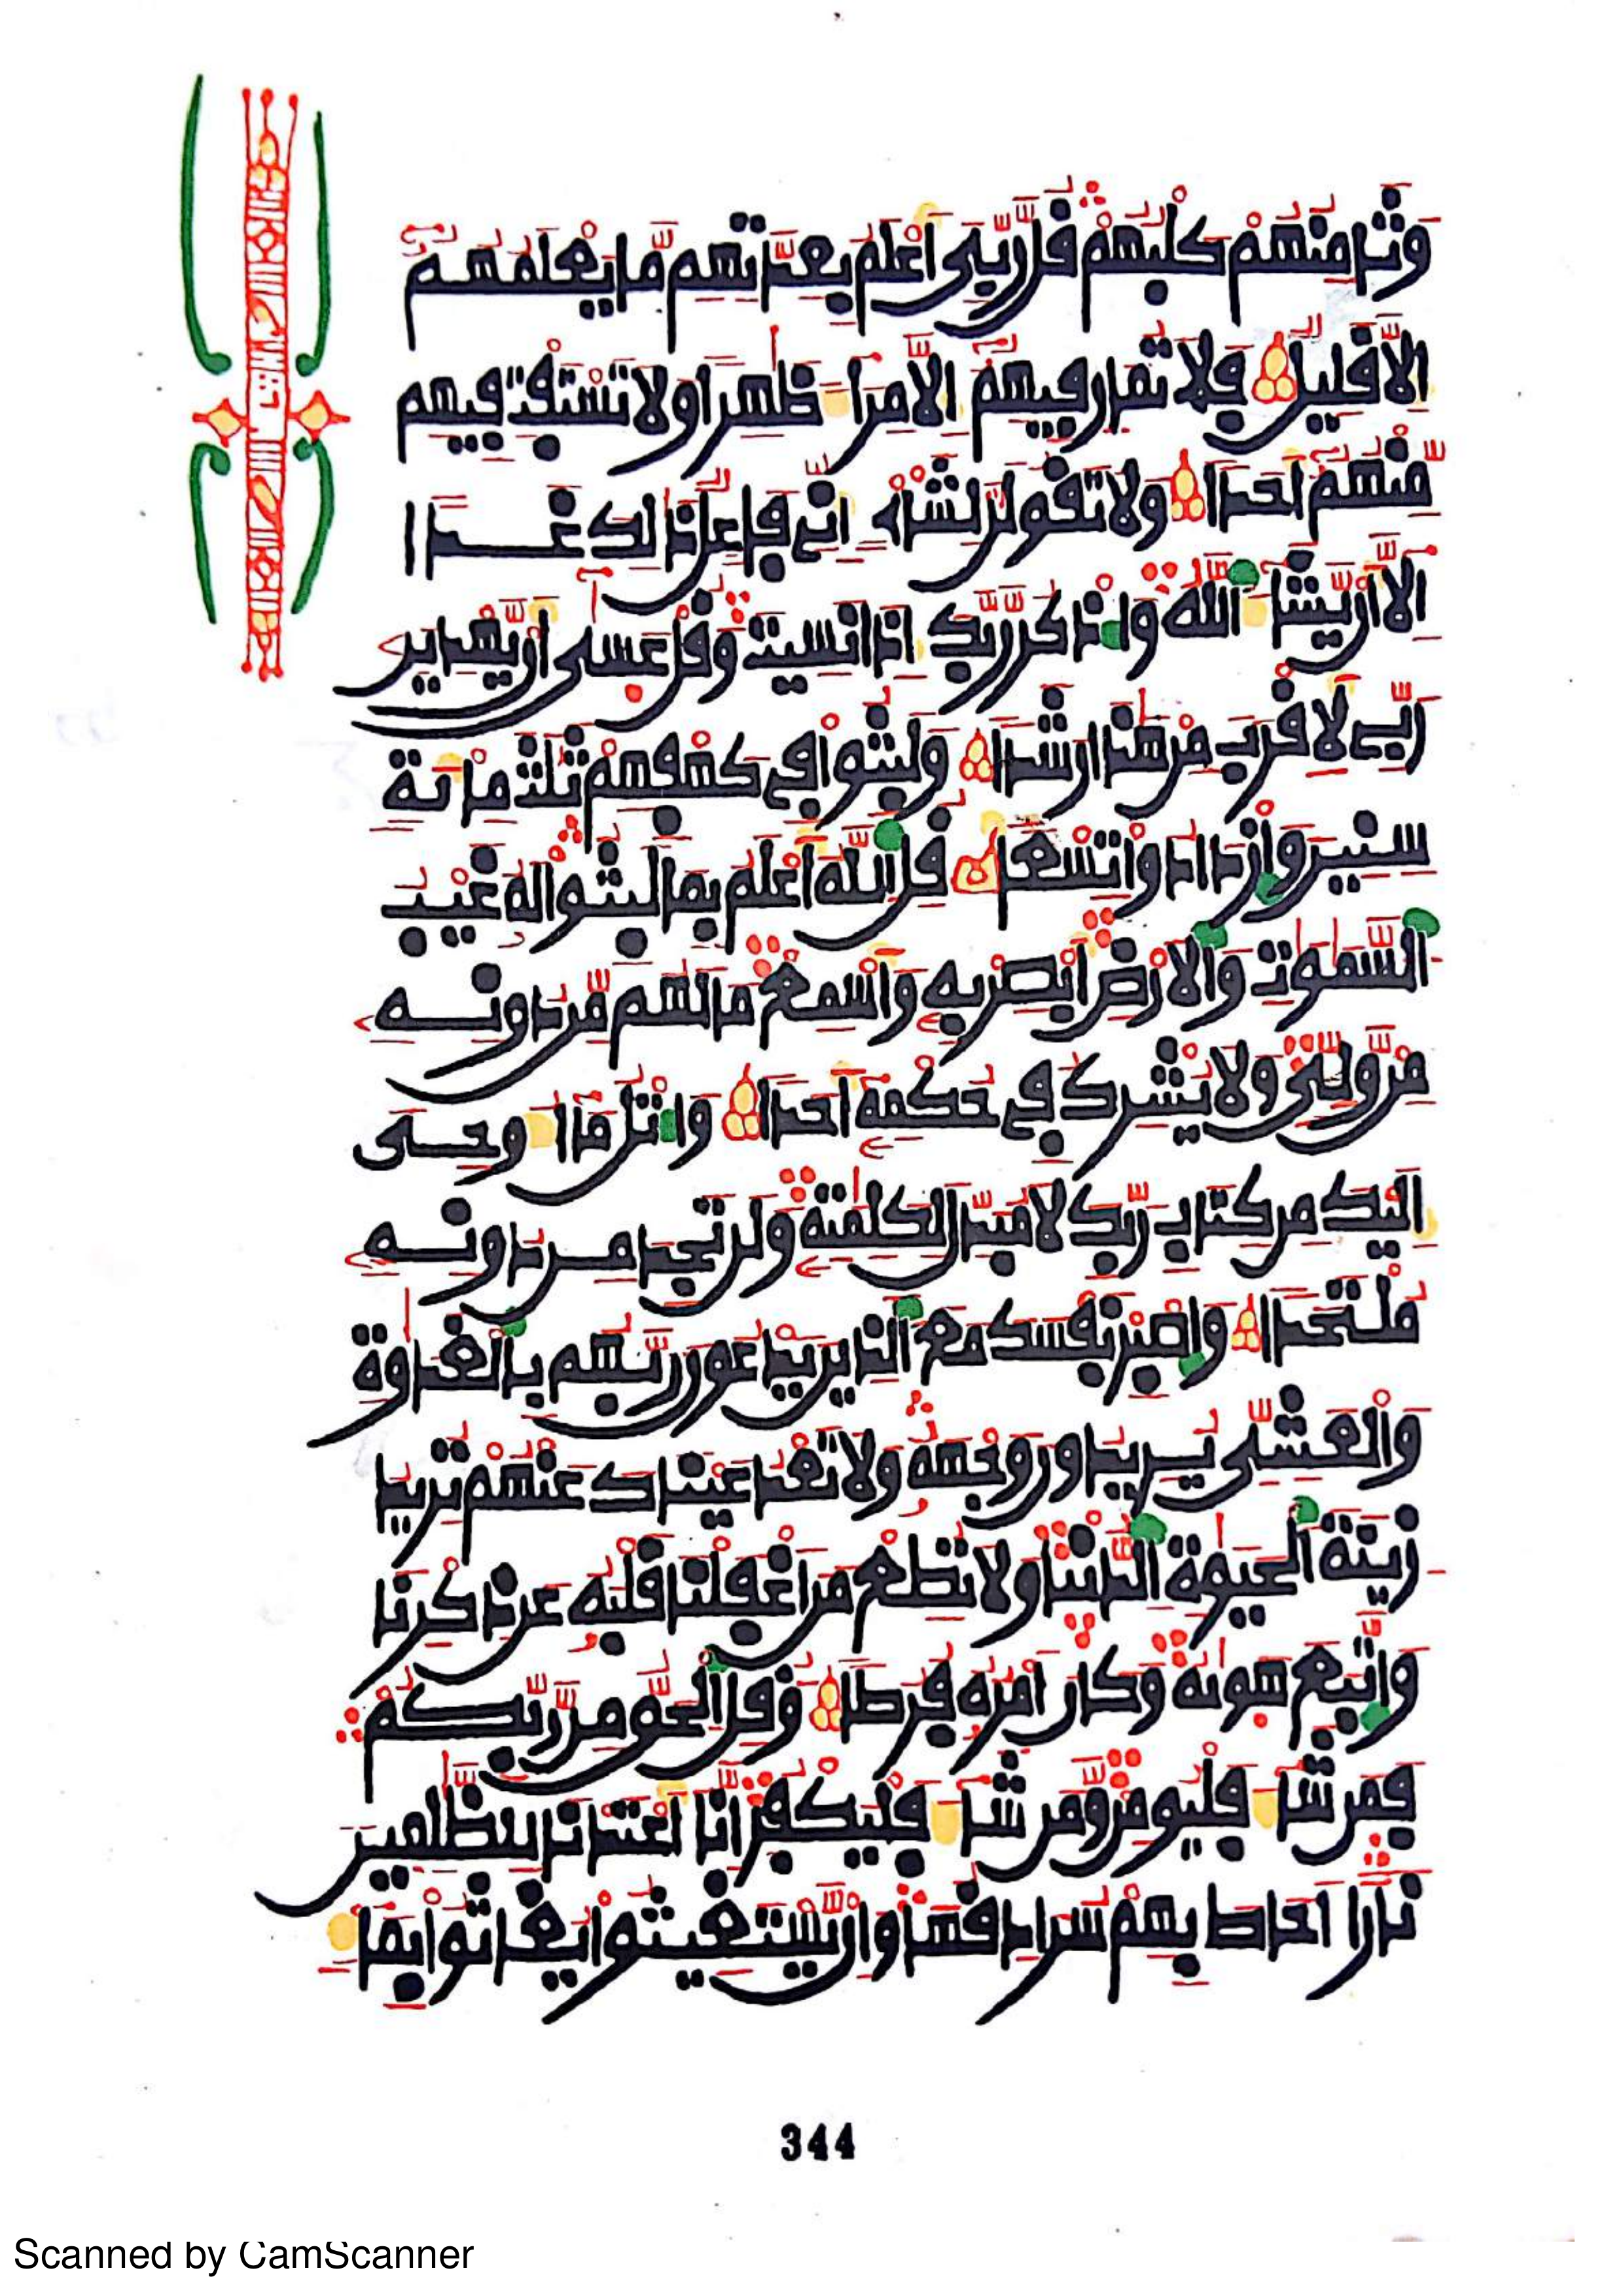 وثامنهم كلبهم قل ربي أعلم بعدتهم ما يعلمهم
إلا قليل فلا تمار فيهم إلا مراء ظهرا ولا تستفت فيهم
منهم أحدا ولا تقولن لشاىء اني فاعل ذلك غدا
إلا أن يشاء الله واذكر ربك إذا نسيت وقل عسى أن يهدين
ربي لأقرب من هذا رشدا ولبثوا في كهفهم ثلث مائة
سنين وازدادوا تسعا قل الله أعلم بما لبثوا له غيب
السموت والأرض أبصر به وأسمع ما لهم من دونه
من ولي ولا يشرك في حكمه أحدا واتل ما أوحي
إليك من كتاب ربك لا مبدل لكلمته ولن تجد من دونه
ملتحدا واصبر نفسك مع الذين يدعون ربهم بالغدوة
والعشي يريدون وجهه ولا تعد عيناك عنهم تريد
زينة الحيوة الدنيا ولا تطع من أغفلنا قلبه عن ذكرنا
واتبع هويه وكان أمره فرطا وقل الحق من ربكم
فمن شاء فليومن ومن شاء فليكفر إنا أعتدنا للظلمين
نارا أحاط بهم سرادقها وإن يستغيثوا يغاثوا بما
344
Scanned by CamScanner